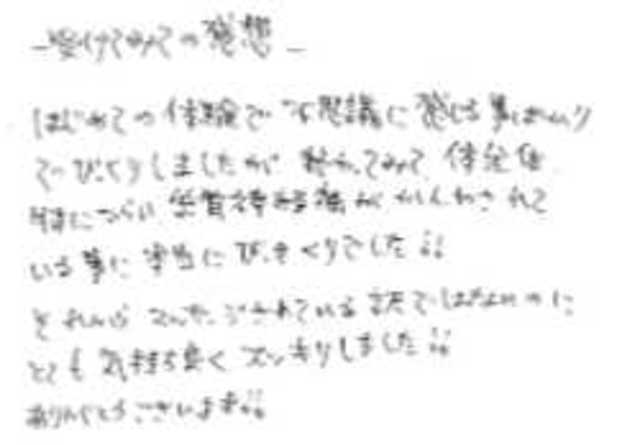 –受けてみての感想–
はじめての体験で不思議に感じる事ばかり
でびっくりしましたが 終わってみて 体全体
特につらい 坐骨神経痛がかんわされて
いる事に本当にびっくりでした!!
それから されている訳ではないのに
とても気持ち良くスッキリしました!!
ありがとうございます!!